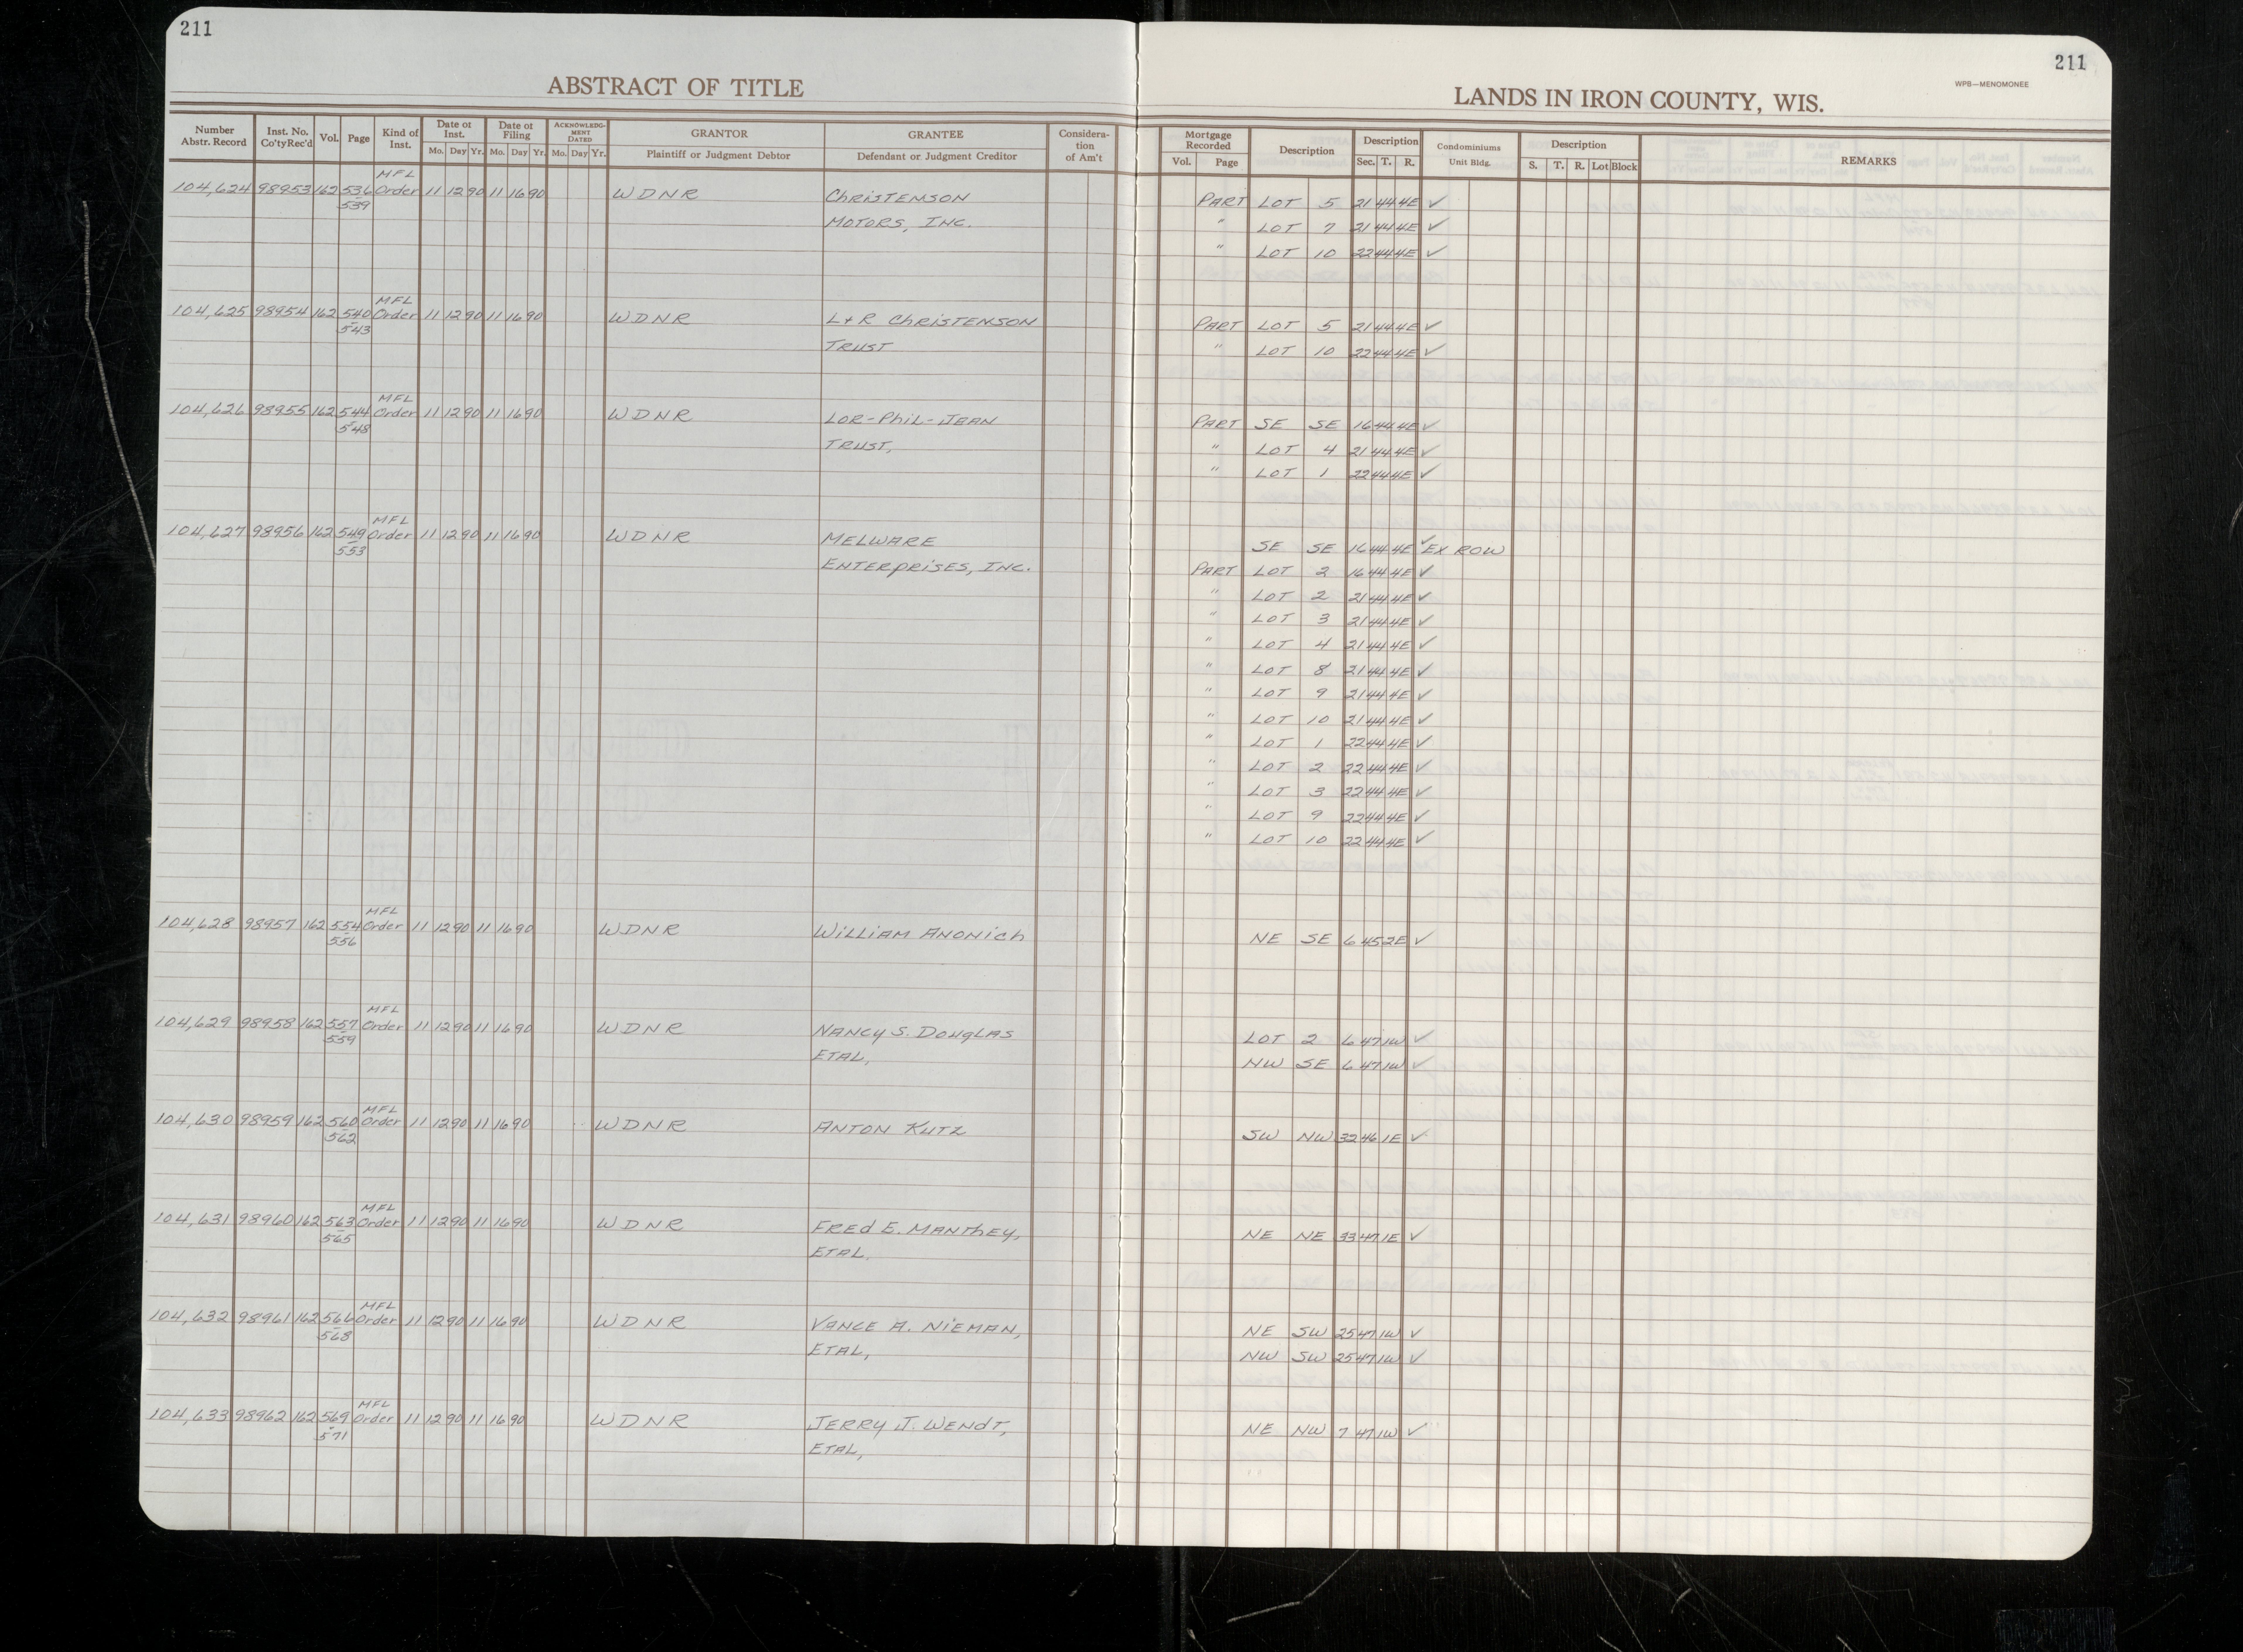 211
211
WPB—MENOMONEE
ABSTRACT OF TITLE
LANDS IN IRON COUNTY, WIS.
Number Abstr. Record | Inst. No. Co'ty Rec'd | Vol. | Page | Kind of Inst. | Date of Inst. Mo. Day Yr. | Date of Filing Mo. Day Yr. | ACKNOWLEDGMENT DATED Mo. Day Yr. | GRANTOR Plaintiff or Judgment Debtor | GRANTEE Defendant or Judgment Creditor | Consideration of Am't | Mortgage Recorded Vol. Page | Description | Description Sec. T. R. | Condominiums Unit Bldg. | Description S. T. R. Lot Block | REMARKS
MFL
104,624 98953 162 536 Order 11 12 90 11 16 90 WDNR Christenson PART LOT 5 21 44 4E ✓
539 MOTORS, INC. " LOT 7 21 44 4E ✓
" LOT 10 22 44 4E ✓
MFL
104,625 98954 162 540 Order 11 12 90 11 16 90 WDNR L+R Christenson PART LOT 5 21 44 4E ✓
543 TRUST " LOT 10 22 44 4E ✓
MFL
104,626 98955 162 544 Order 11 12 90 11 16 90 WDNR LOR-Phil-JEAN PART SE SE 16 44 4E ✓
548 TRUST, " LOT 4 21 44 4E ✓
" LOT 1 22 44 4E ✓
MFL
104,627 98956 162 549 Order 11 12 90 11 16 90 WDNR MELWARE SE SE 16 44 4E ✓ EX ROW
553 ENTERPRISES, INC. PART LOT 2 16 44 4E ✓
" LOT 2 21 44 4E ✓
" LOT 3 21 44 4E ✓
" LOT 4 21 44 4E ✓
" LOT 8 21 44 4E ✓
" LOT 9 21 44 4E ✓
" LOT 10 21 44 4E ✓
" LOT 1 22 44 4E ✓
" LOT 2 22 44 4E ✓
" LOT 3 22 44 4E ✓
" LOT 9 22 44 4E ✓
" LOT 10 22 44 4E ✓
MFL
104,628 98957 162 554 Order 11 12 90 11 16 90 WDNR William Anonich NE SE 6 45 2E ✓
556
MFL
104,629 98958 162 557 Order 11 12 90 11 16 90 WDNR NANCY S. DOUGLAS LOT 2 6 47 1W ✓
559 ETAL, NW SE 6 47 1W ✓
MFL
104,630 98959 162 560 Order 11 12 90 11 16 90 WDNR ANTON KUTZ SW NW 32 46 1E ✓
562
MFL
104,631 98960 162 563 Order 11 12 90 11 16 90 WDNR FREd E. MANThEY, NE NE 33 47 1E ✓
565 ETAL.
MFL
104,632 98961 162 566 Order 11 12 90 11 16 90 WDNR VANCE A. NIEMAN, NE SW 25 47 1W ✓
568 ETAL, NW SW 25 47 1W ✓
MFL
104,633 98962 162 569 Order 11 12 90 11 16 90 WDNR JERRY J. WENdT, NE NW 7 47 1W ✓
571 ETAL,